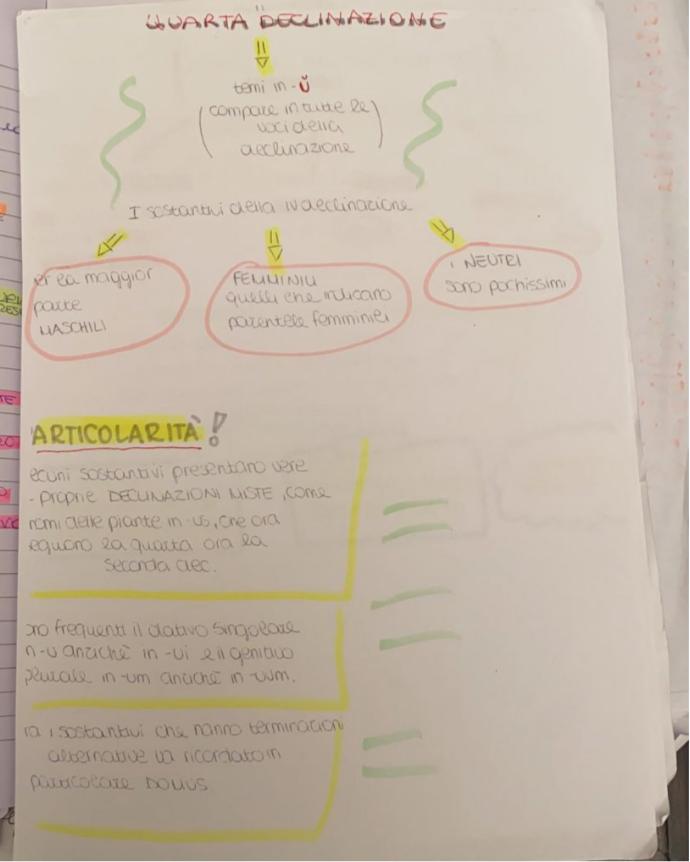 QUARTA DECLINAZIONE
temi in -ŭ
(compare in tutte le
voci della
declinazione)
I sostantivi della IV declinazione
er la maggior
parte
MASCHILI
FEMMINILI
quelli che indicano
parentele femminili
i NEUTRI
sono pochissimi
ARTICOLARITÀ!
lcuni sostantivi presentano vere
- proprie DECLINAZIONI MISTE, come
nomi delle piante in -us, che ora
eguono la quarta ora la
seconda dec.
ono frequenti il dativo singolare
n -u anziché in -ui e il genitivo
plurale in -um anziché in -uum.
ra i sostantivi che hanno terminazioni
alternative va ricordato in
particolare DOMUS